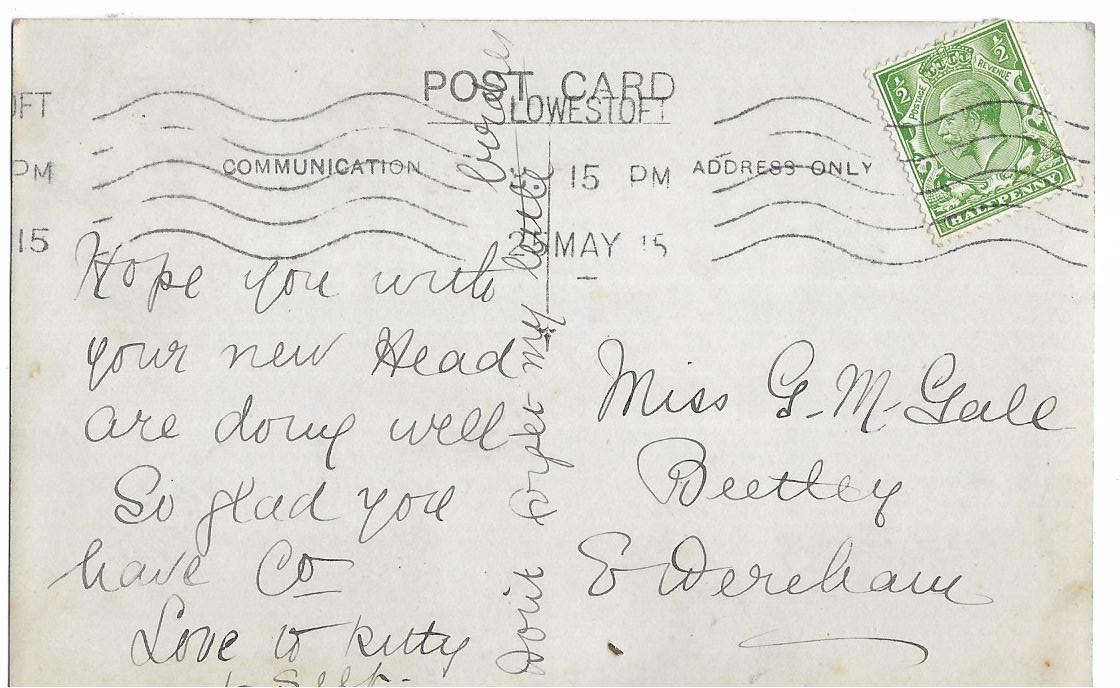 POST CARD
LOWESTOFT
OFT
COMMUNICATION
ADDRESS ONLY
PM
15 PM
15
MAY 15
½ ½
POSTAGE REVENUE
HALFPENNY
Hope you with
your new Head
are doing well
So glad you
have Co
Love to Kitty
& Self.
Don't forget my
Miss G. M. Gale
Beetley
E Dereham